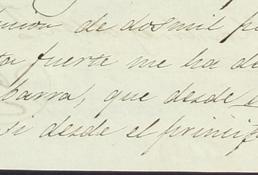 de dosmil
fuerte me ha
barra, que desde
desde el princip